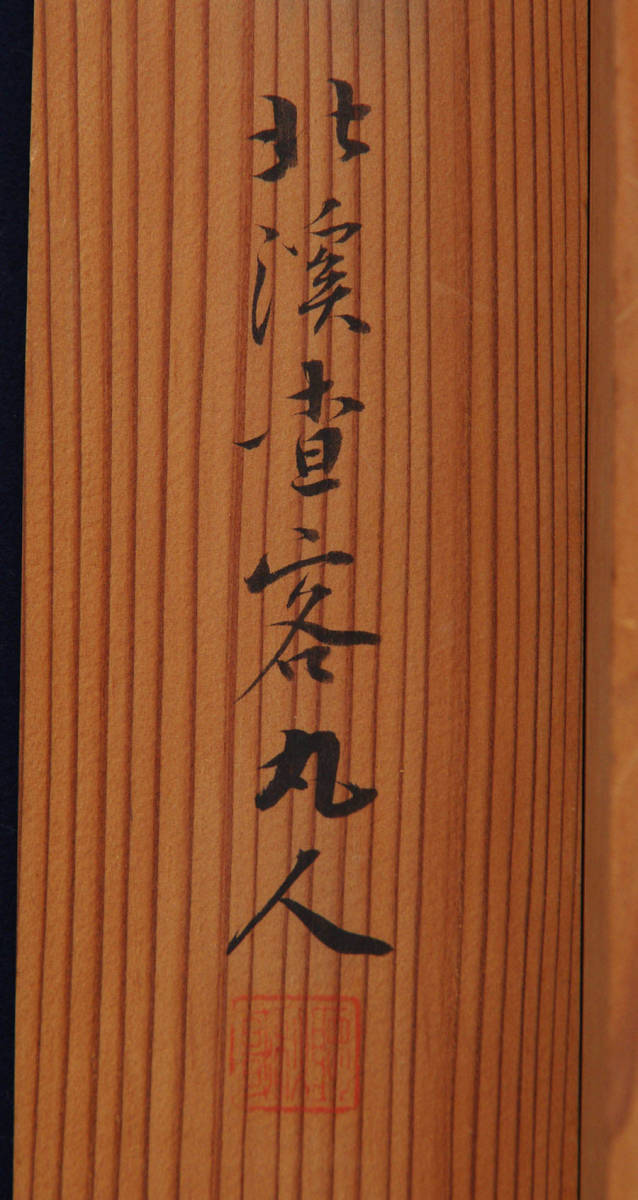 北溪査客丸人